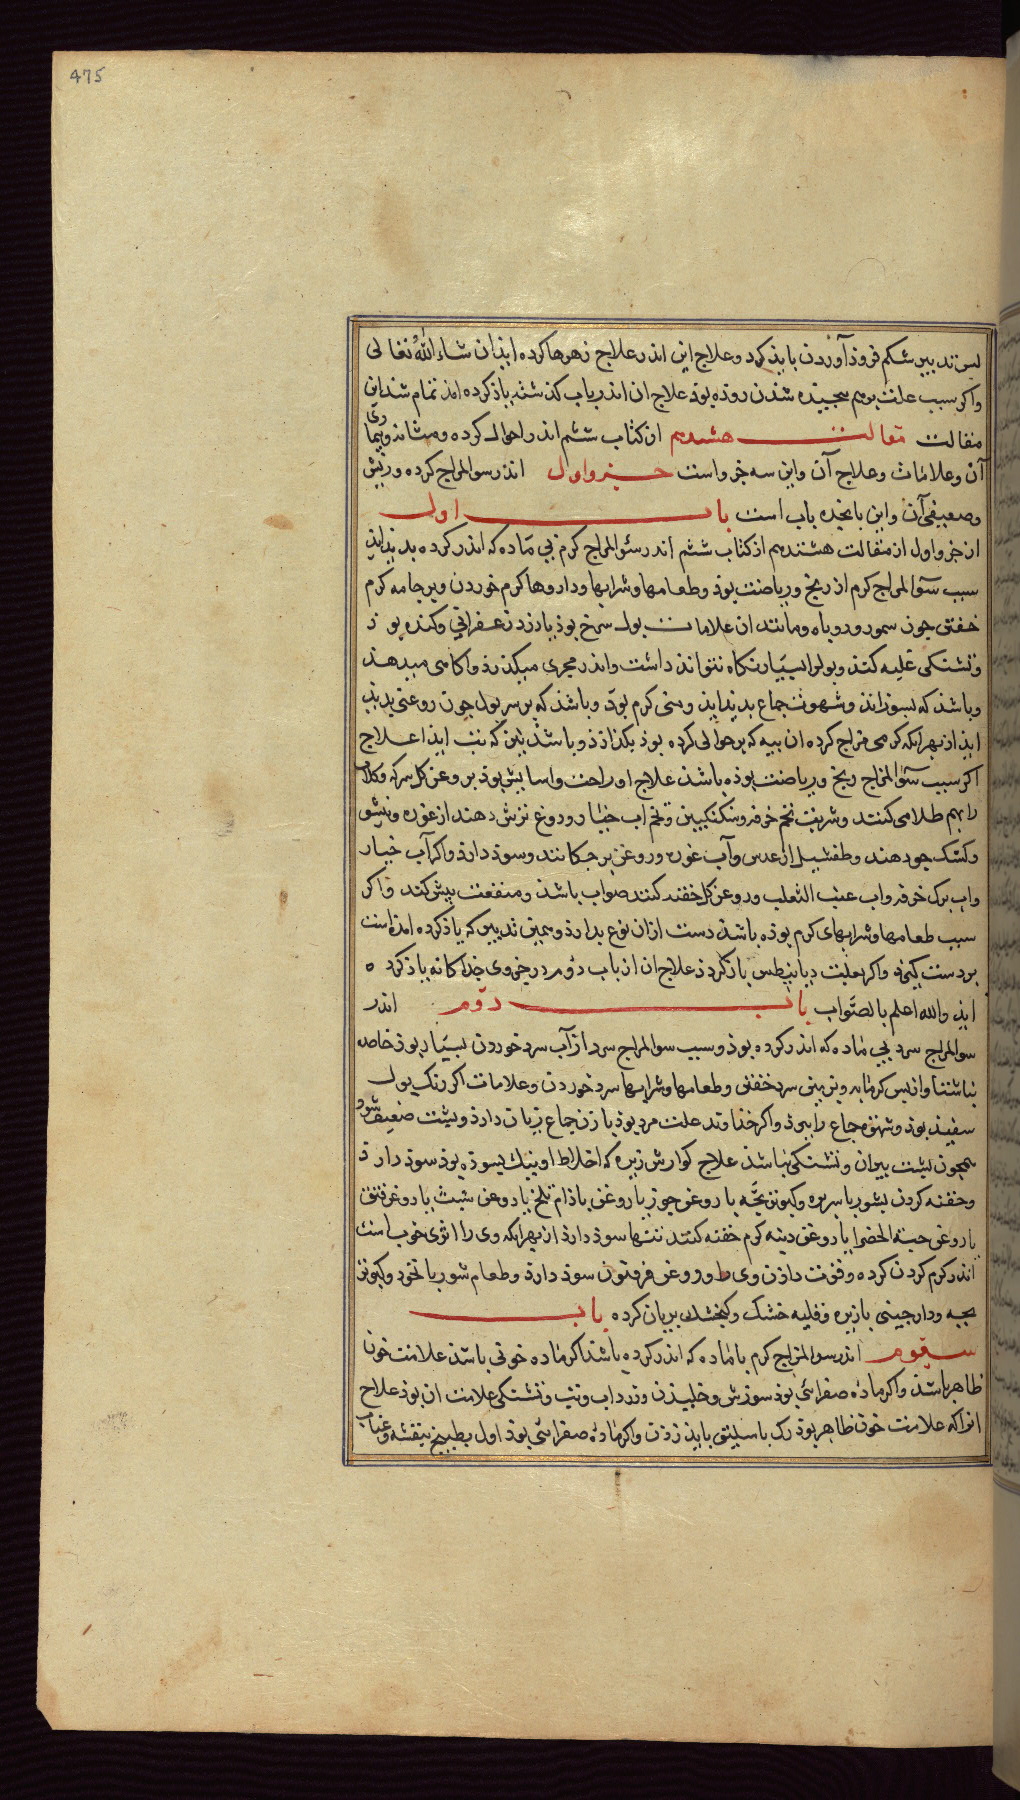 475
پس تدبیر شکم فروذ آوردن بایذ کرد و علاج این اندر علاج زهرها کرده ایذ ان شاء الله تعالی
واکر سبب علت برهم پیچیده شذن روذه بوذ علاج ان اندر باب کذشته یاذ کرده امذ تمام شذ این
مقالت مقالت هشتدهم از کتاب ششم اندر احوال کرده و مثانه و بیماری
آن و علامات و علاج آن واین سه جزو است جزو اول اندر سوالمزاج کرده و ریش
وضعیفی آن واین پانجده باب است باب اول
از جزو اول از مقالت هشتدهم از کتاب ششم اندر سوالمزاج کرم بی ماده که اندر کرده بدیذ ایذ
سبب سوالمزاج کرم از رنج و ریاضت بوذ و طعامها و شرابها و داروها کرم خوردن و بر جامه کرم
خفتن جون سمور و روباه و مانند ان علامات بول سرخ بوذ یا زرد زعفرانی و کنده بوذ
و تشنکی غلبه کند و بول را بسیار نکاه نتواند داشت و اندر مجری میکذرذ و اکاهی میدهذ
و باشذ که بسوزاند و شهوت جماع بدیذ ایذ و منی کرم بوذ و باشذ که بر سر بول جون روغنی بدیذ
ایذ از بهر انکه کرمی مزاج کرده ان پیه که بر حوالی کرده بوذ بکذازذ و باشذ نیز که تب ایذ علاج
اکر سبب سوالمزاج رنج و ریاضت بوذه باشذ علاج او راحت واسایش بوذ بروغن کل سرکه و کلاب
را بهم طلا می کنند و شربت تخم خرفه و سکنکبین و تخم اب خیار و دوغ ترش دهند از غوره و
و کشک جو دهند و طفشیل از عدس و آب غوره و روغن بر جکانند و سوذ دارذ واکر آب خیار
واب برک خرفه واب عنب الثعلب و روغن کل حقنه کنند صواب باشذ و منفعت بیش کند واکر
سبب طعامها و شرابهای کرم بوذه باشذ دست از ان نوع بدارذ و همین تدبیر که یاذ کرده امذه است
بر دست کیرذ واکر بعلت دیابیطس باز کردذ علاج ان از باب دوم در جزوی جذاکانه یاذ کرده
ایذ والله اعلم بالصواب باب دوم اندر
سوالمزاج سرد بی ماده که اندر کرده بوذ و سبب سوالمزاج سرد از آب سرد خوردن بسیار بوذ خاصه
ناشتا و از پس کرمابه و بر زمین سرد خفتن و طعامها و شرابها سرد خوردن و علامات اکر رنک بول
سفیذ بوذ و شهوة جماع را ببرذ واکر خذاوند علت مرد بوذ یا زن جماع زیان دارذ و پشت ضعیف شود
همجون پشت پیران و تشنکی نباشذ علاج کوارش زیره که اخلاط او نیک سوذه بوذ سوذ دارذ
وحقنه کردن بشوربا سر بره و کبوتر بجه با روغن جوز یا روغن باذام تلخ یا روغن شبث یا روغن فستق
یا روغن حبة الخضرا یا روغن دنبه کرم حقنه کنند تنها سوذ دارذ از بهر انکه وی را اثری خوب است
اندر کرم کردن کرده و قوت داذن وی و روغن فرفیون سوذ دارذ و طعام شوربا نخوذ و کبوتر
بجه و دارجینی با زیره و قلیه خشک و کنجشک بریان کرده باب
سیوم اندر سوالمزاج کرم با ماده که اندر کرده باشذ اکر ماده خونی باشذ علامت خون
ظاهر باشذ واکر ماده صفرائی بوذ سوزش و خلیذن و زرداب و تب و تشنکی علامت ان بوذ علاج
انرا که علامت خون ظاهر بوذ رک باسلیق بایذ زذن واکر ماده صفرائی بوذ اول بطبیخ بنفشه و عناب